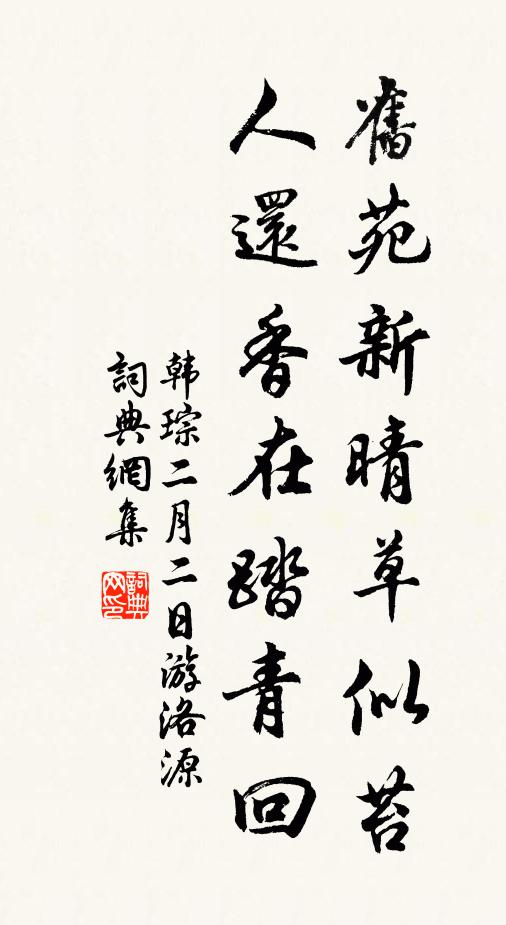 舊苑新晴草似苔
人還香在踏青回
韩琮二月二日游洛源
詞典網集
詞典网印